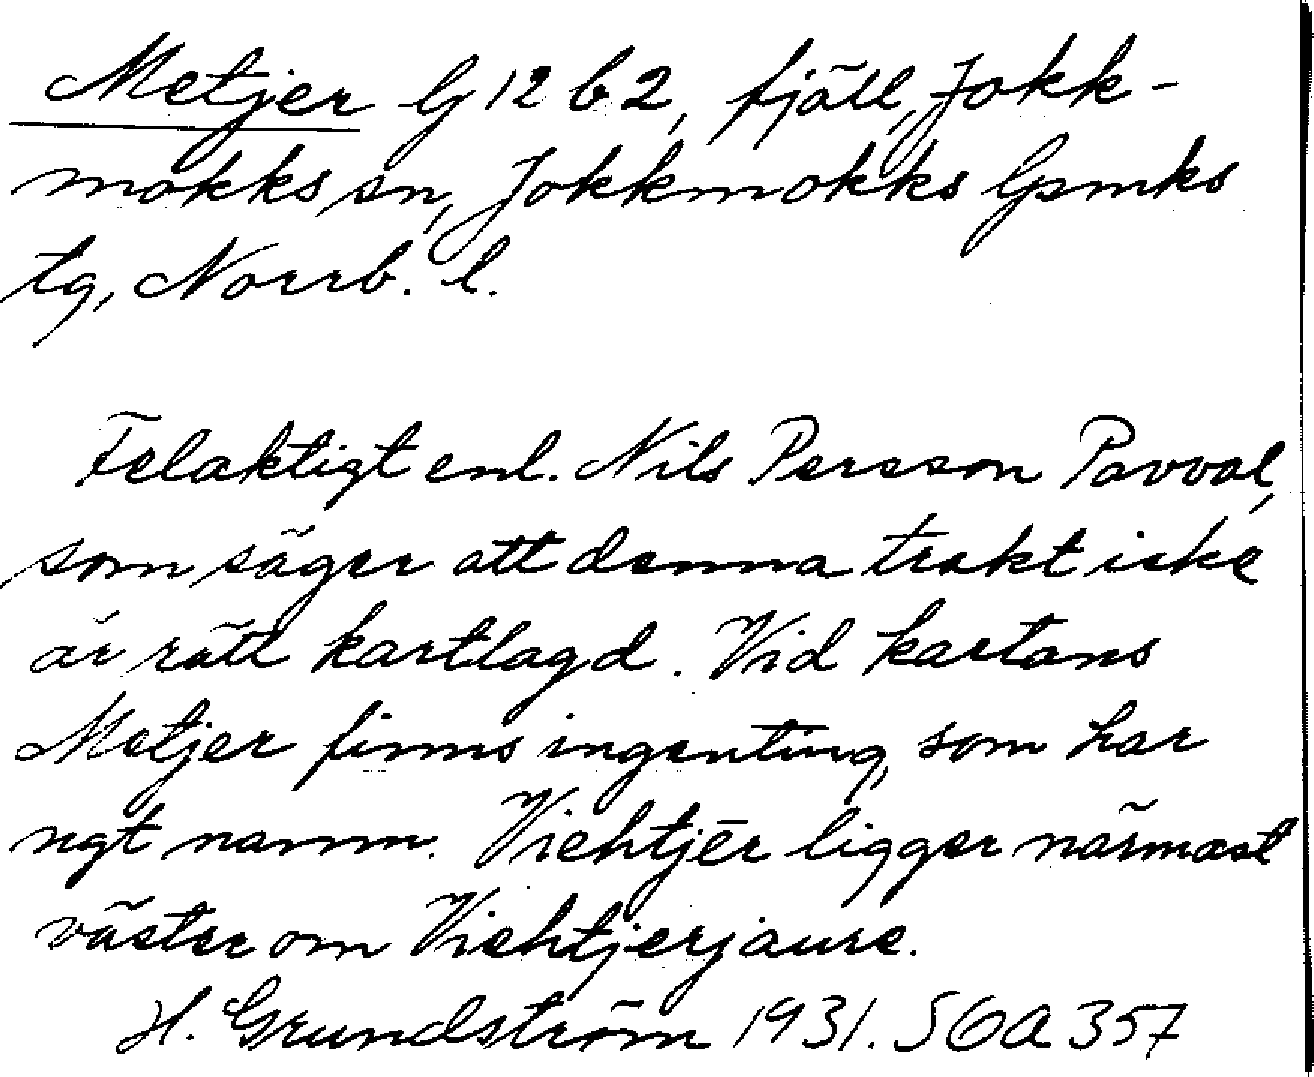 Metjer G 12 b 2, fjäll, Jokk-
mokks sn, Jokkmokks lpmks
tg, Norrb. l.
Felaktigt enl. Nils Persson Pavval,
som säger att denna trakt icke
är rätt kartlagd. Vid kartans
Metjer finns ingenting, som har
ngt namn. Viehtjēr ligger närmast
väster om Viehtjerjaure.
H. Grundström 1931. SOA 357